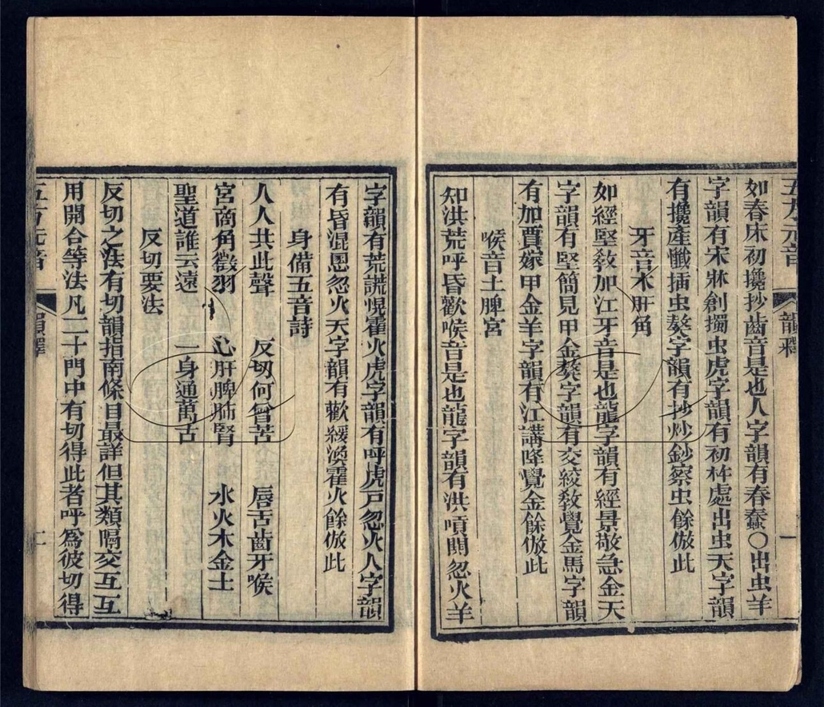 五方元音
韻釋
一
如春床初攙抄齒音是也人字韻有春蠢〇出虫羊
字韻有宋牀創擉虫虎字韻有初杵處出虫天字韻
有攙產懺插虫獒字韻有抄炒鈔察虫餘倣此
牙音木肝角
如經堅敎加江牙音是也龍字韻有經景敬急金天
字韻有堅簡見甲金獒字韻有交絞敎覺金馬字韻
有加賈嫁甲金羊字韻有江講降覺金餘倣此
喉音土脾宮
知洪荒呼昏歡喉音是也龍字韻有洪嗊閧忽火羊
字韻有荒謊愰霍火虎字韻有呼虎戸忽火人字韻
有昏混恩忽火天字韻有歡緩渙霍火餘倣此
身備五音詩
人人共此聲 反切何曾苦 唇舌齒牙喉
宮商角徵羽 心肝脾肺腎 水火木金土
聖道誰云遠 一身通萬古
反切要法
反切之法有切韻指南條目最詳但其類隔交互互
用開合等法凡二十門中有切得此者呼爲彼切得
五方元音
韻釋
二